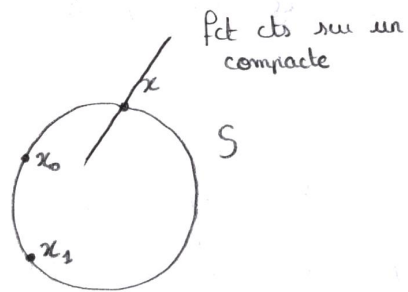 fct cts sur un
compacte
x
S
x₀
x₁